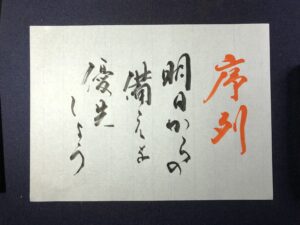 序列
明日からの
備えを
優先
しよう